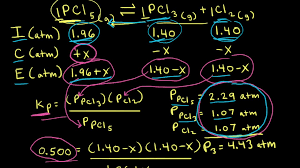 1PCl5(g) ⇌ 1PCl3(g) + 1Cl2(g)
I (atm) 1.96 1.40 1.40
C (atm) +x -x -x
E (atm) 1.96+x 1.40-x 1.40-x
Kp = (PPCl3)(PCl2) / PPCl5
PPCl5 = 2.29 atm
PPCl3 = 1.07 atm
PCl2 = 1.07 atm
0.500 = (1.40-x)(1.40-x)
4.43 atm